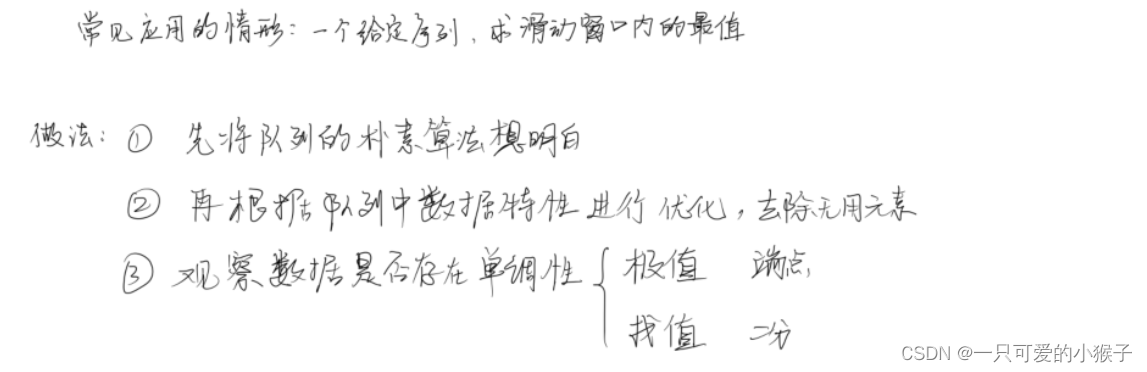 常见应用的情形：一个给定序列，求滑动窗口内的最值
做法：① 先将队列的朴素算法想明白
② 再根据队列中数据特性进行优化，去除无用元素
③ 观察数据是否存在单调性 { 极值 端点
找值 二分
CSDN @一只可爱的小猴子